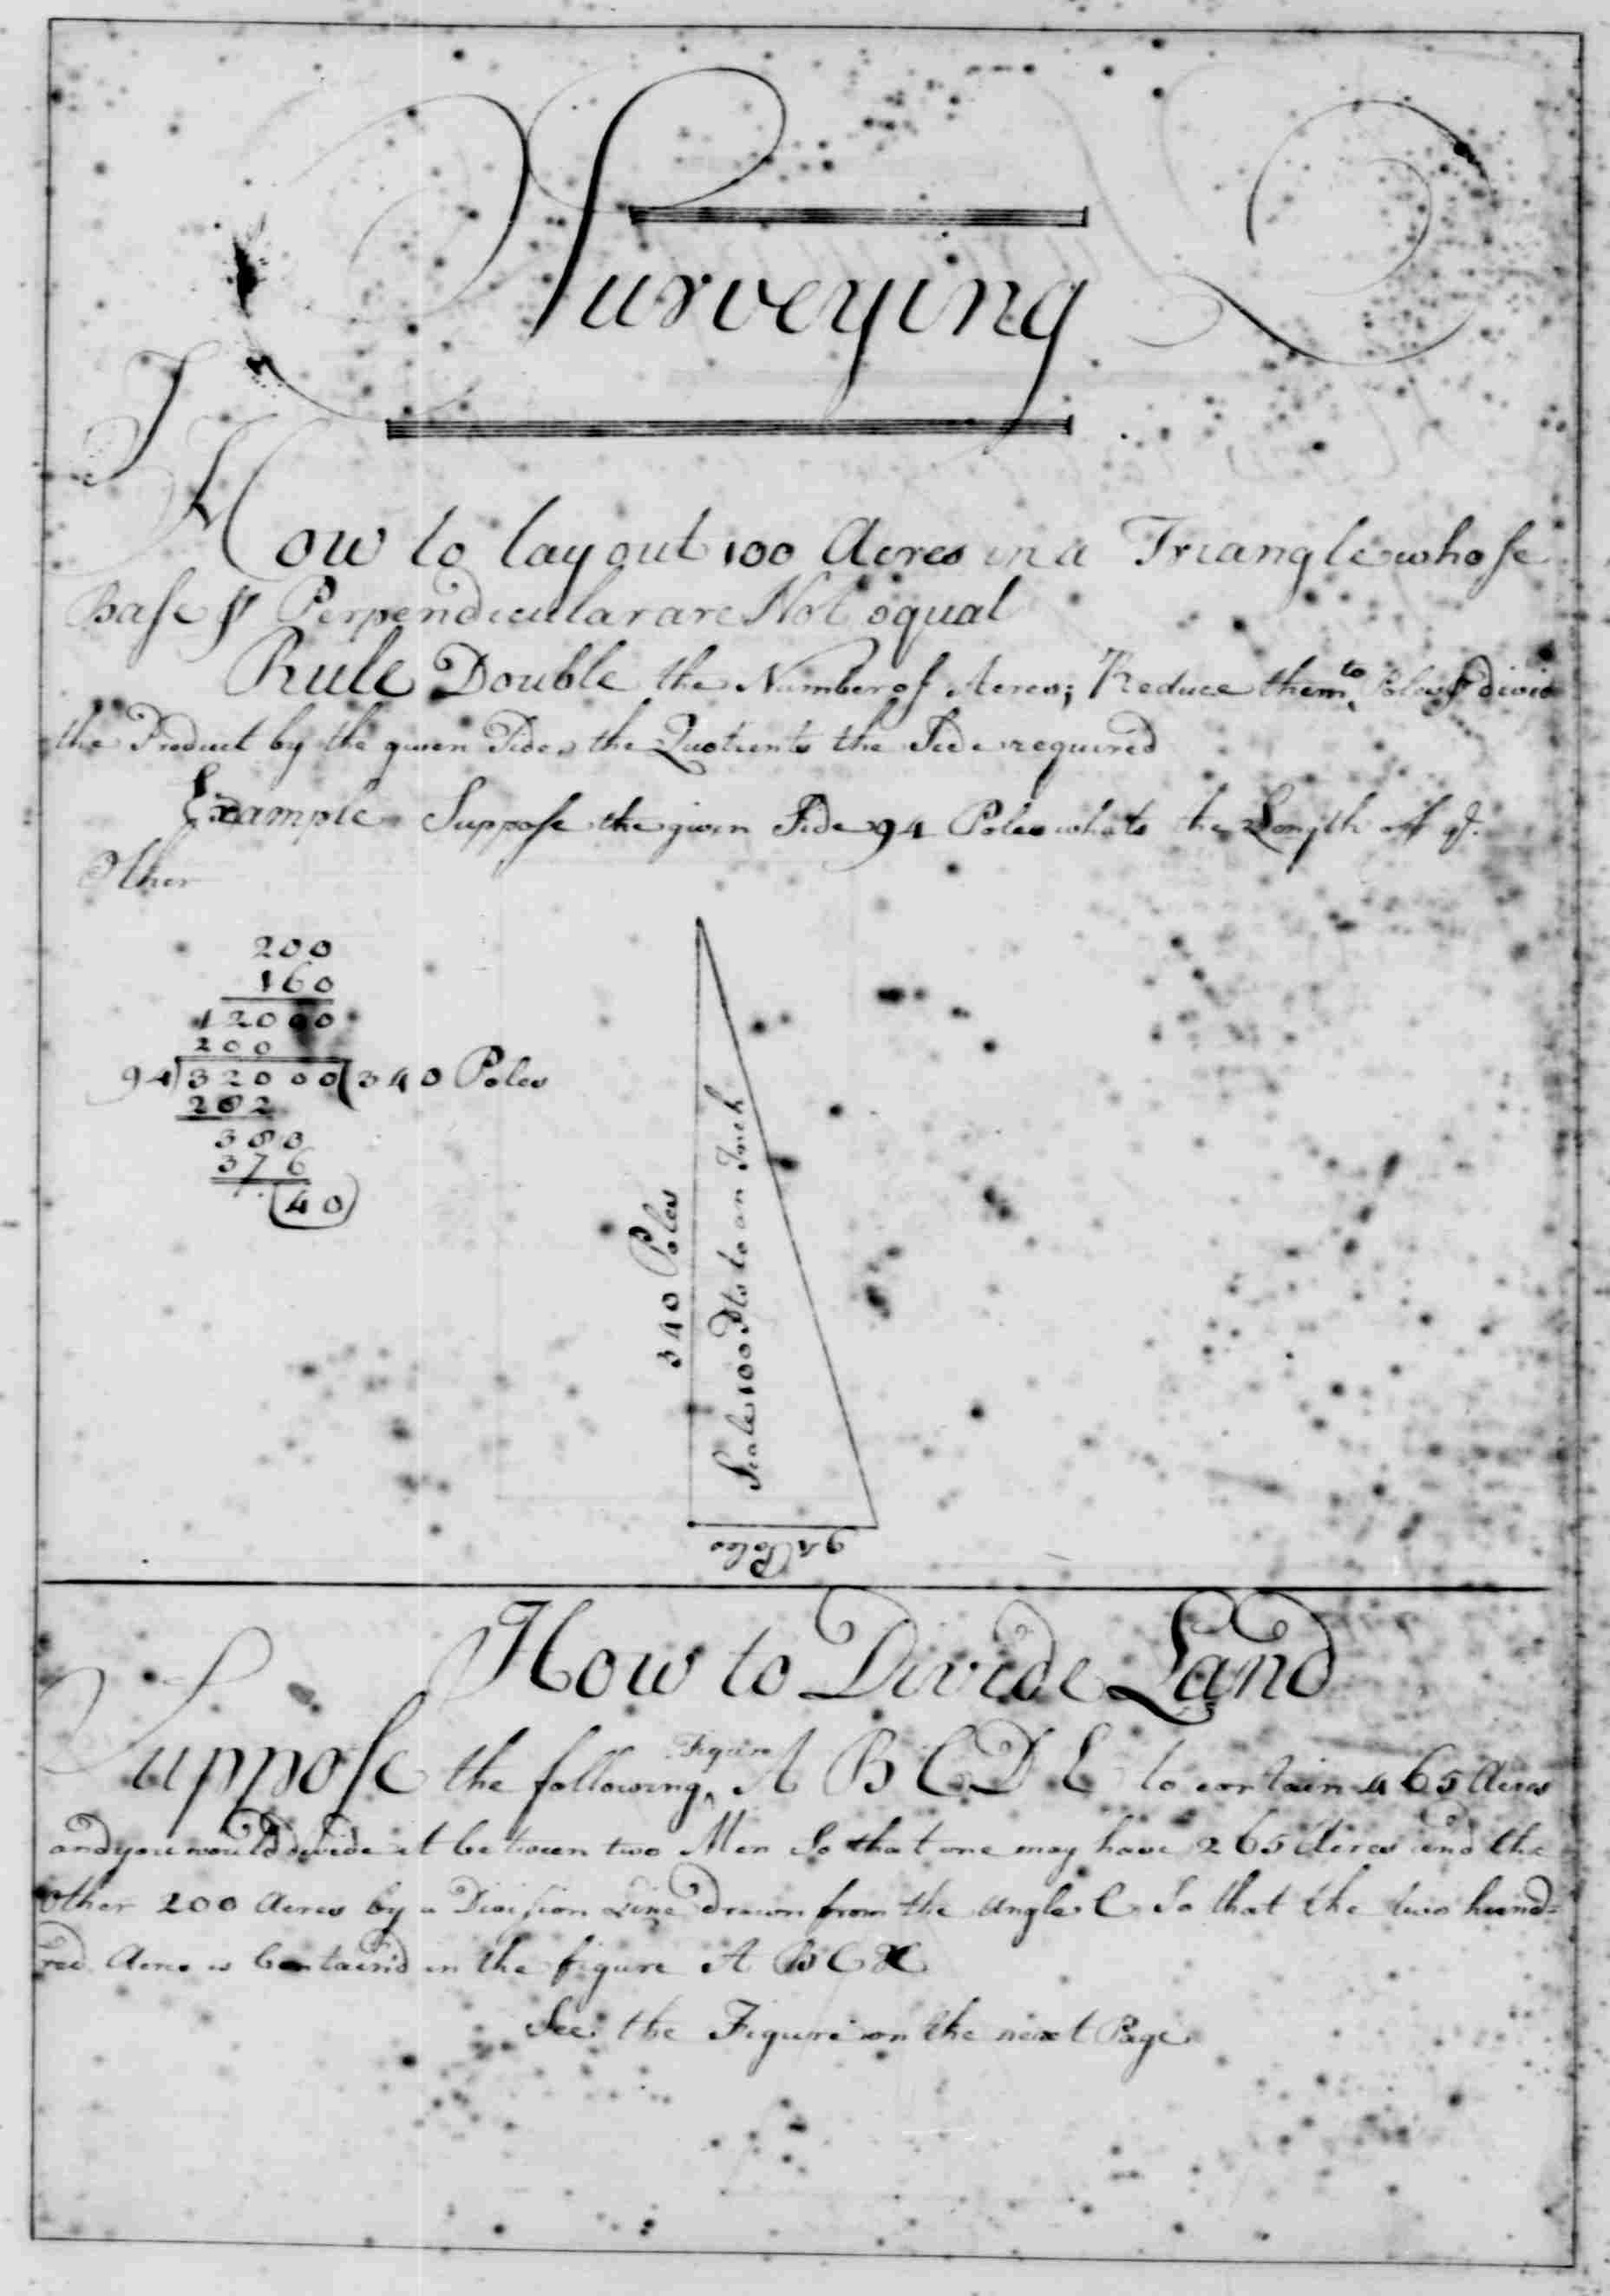 Surveying
How to lay out 100 Acres in a Triangle whose
Base & Perpendicular are Not equal
Rule Double the Number of Acres; Reduce them to Poles & divid
the Product by the given Side, the Quotients the Side required
Example Suppose the given Side 94 Poles whats the Length of ye.
Other
200
160
12000
200
94)32000(340 Poles
282
380
376
40
340 Poles
Scale 100 Pts to an Inch
94 Poles
How to Divide Land
Suppose the following Figure A B C D E to contain 465 Acres
and you would divide it between two Men So that one may have 265 Acres and the
other 200 Acres by a Division Line drawn from the Angle C So that the two hund=
red Acres is Contain'd in the figure A B C X
See the Figure on the next Page